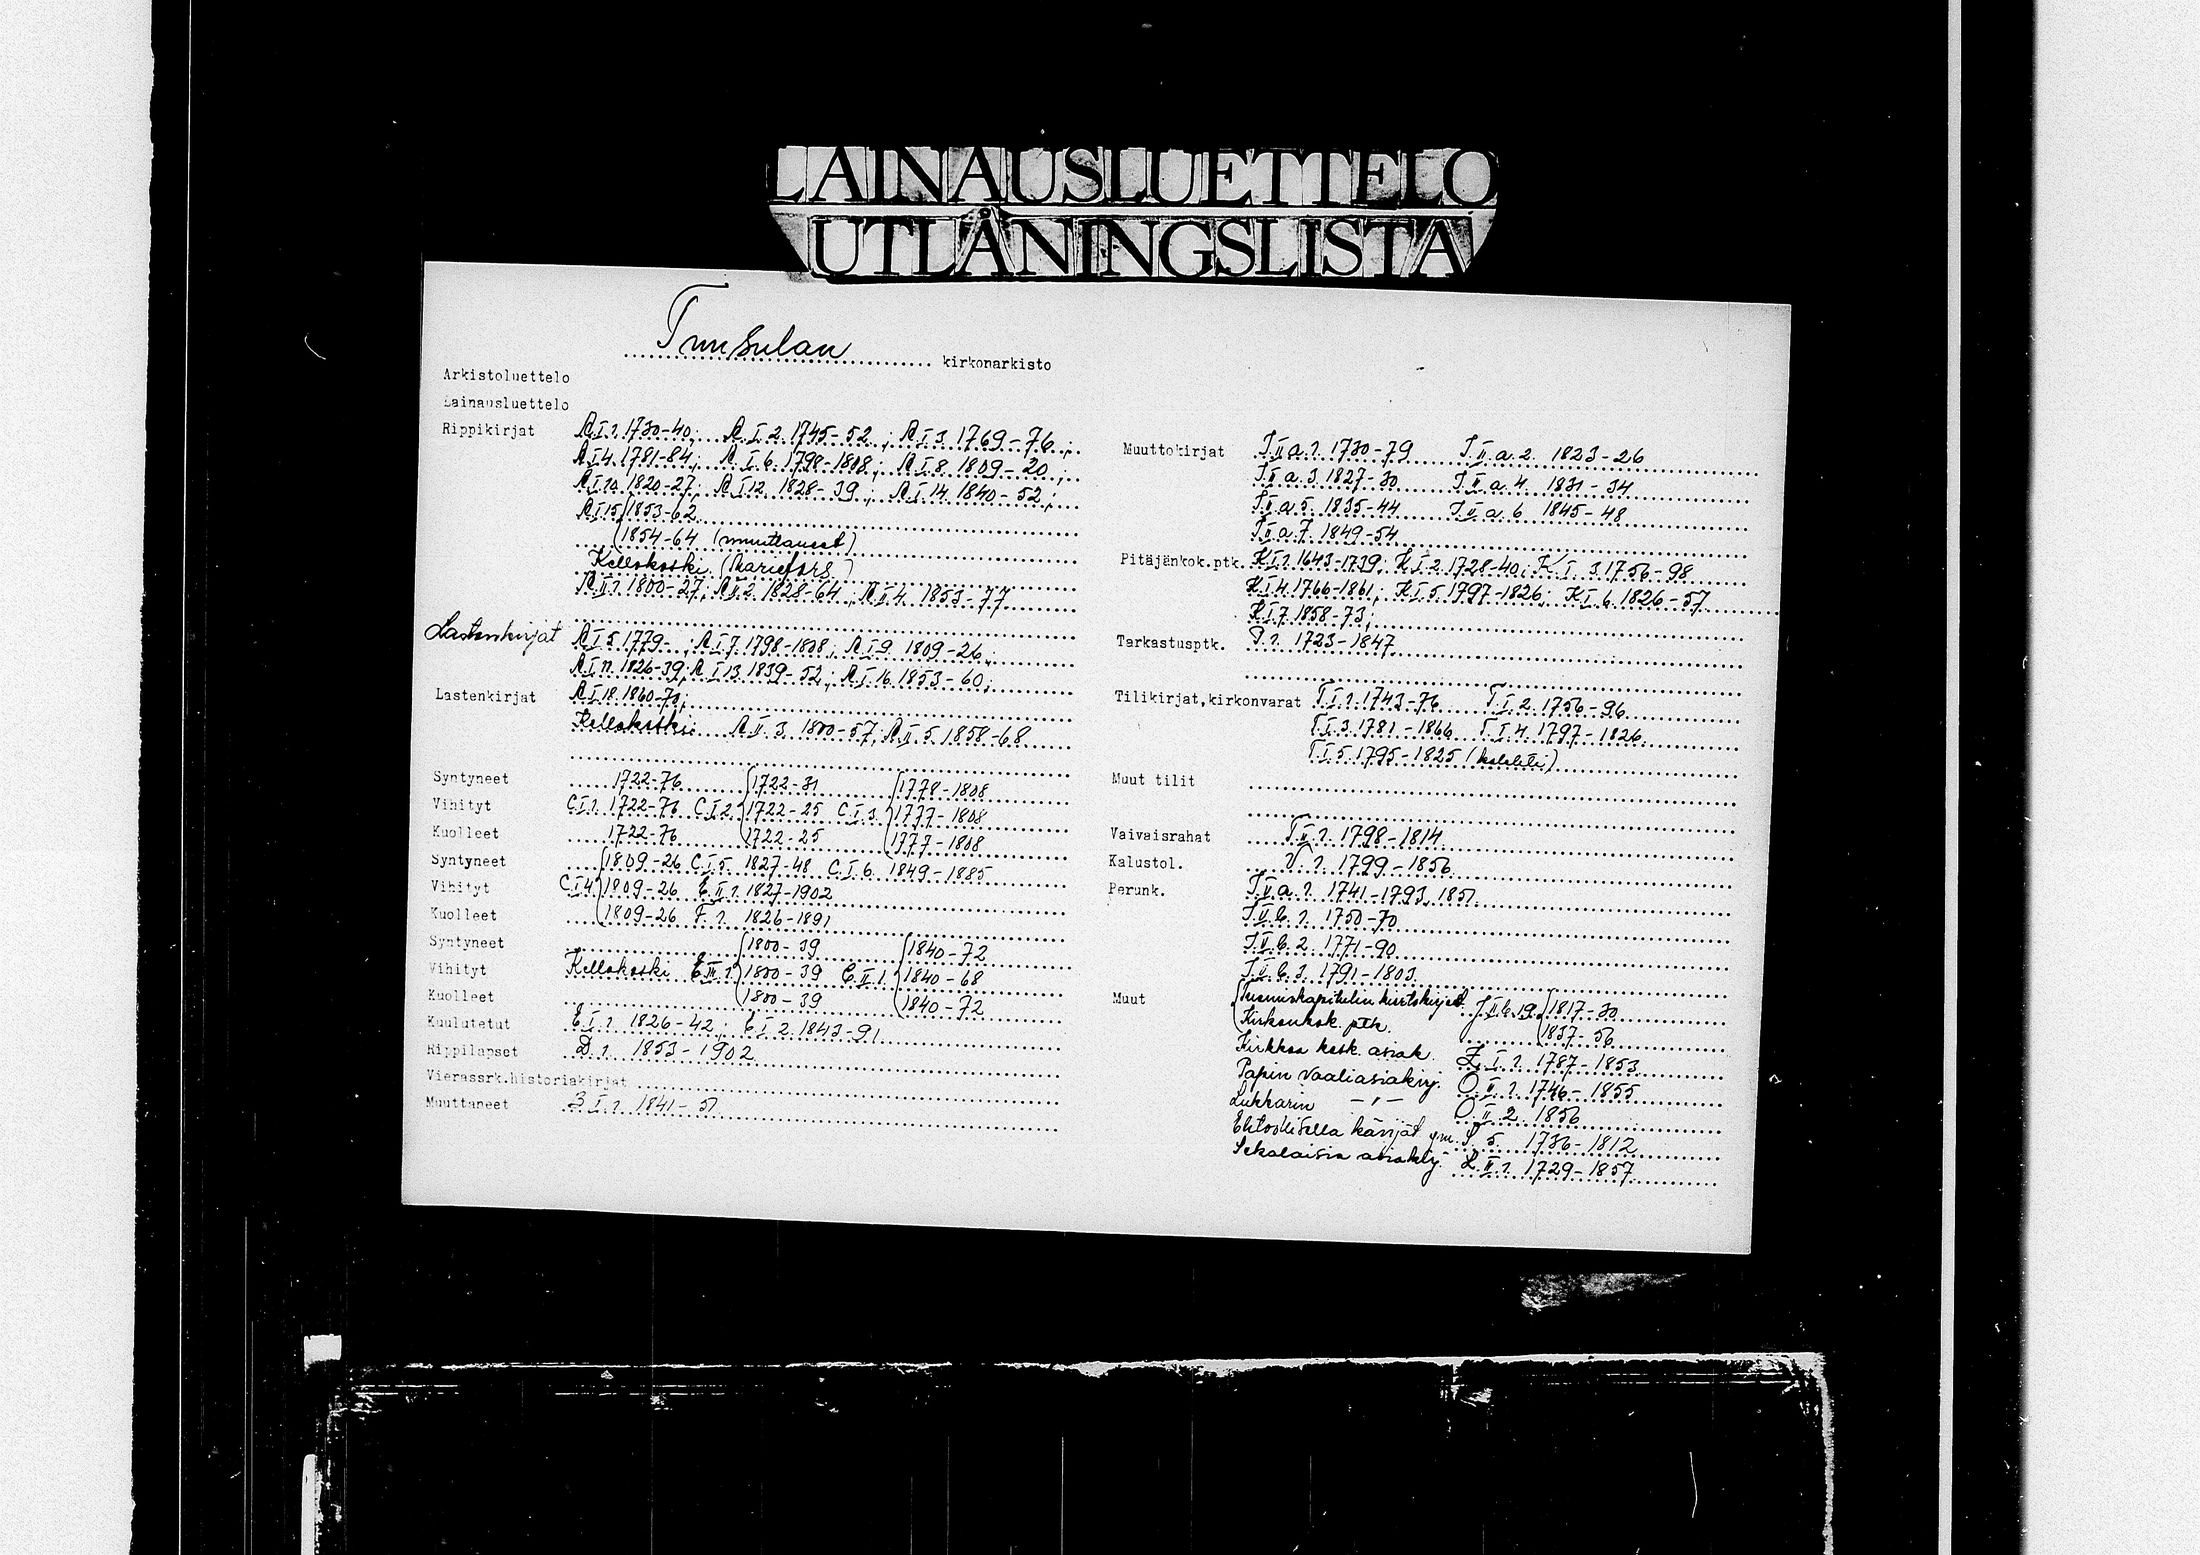 LAINAUSLUETTELO
UTLÅNINGSLISTA
Tuusulan kirkonarkisto
Arkistoluettelo
Lainausluettelo
Rippikirjat A.I.1. 1730-40; A.I.2. 1745-52; A.I.3. 1769-76;
A.I.4. 1781-84; A.I.6. 1798-1808; A.I.8. 1809-20;
A.I.10. 1820-27; A.I.12. 1828-39; A.I.14. 1840-52;
A.I.15. 1853-62
1854-64 (muuttaneet)
Kellokoski (Mariefors)
A.II.1. 1800-27; A.II.2. 1828-64; A.II.4. 1853-77
Lastenkirjat A.I.5. 1779- ; A.I.7. 1798-1808; A.I.9. 1809-26;
A.I.11. 1826-39; A.I.13. 1839-52; A.I.16. 1853-60;
Lastenkirjat A.I.18. 1860-70;
Kellokoski: A.II.3. 1800-57; A.II.5. 1858-68
Syntyneet 1722-76 1722-31 1778-1808
Vihityt C.I.1. 1722-76 C.I.2. 1722-25 C.I.3. 1777-1808
Kuolleet 1722-76 1722-25 1777-1808
Syntyneet 1809-26 C.I.5. 1827-48 C.I.6. 1849-1885
Vihityt C.I.4. 1809-26 E.II.1. 1827-1902
Kuolleet 1809-26 F.1. 1826-1891
Syntyneet 1800-39 1840-72
Vihityt Kellokoski E.III.1. 1800-39 C.II.1. 1840-68
Kuolleet 1800-39 1840-72
Kuulutetut E.I.1. 1826-42; E.I.2. 1843-91
Rippilapset D.1. 1853-1902
Vierassrk.historiakirjat
Muuttaneet B.I.1. 1841-51
Muuttokirjat J.II.a.1. 1730-79 J.II.a.2. 1823-26
J.II.a.3. 1827-30 J.II.a.4. 1831-34
J.II.a.5. 1835-44 J.II.a.6. 1845-48
J.II.a.7. 1849-54
Pitäjänkok.ptk. K.I.1. 1643-1739; K.I.2. 1728-40; K.I.3. 1756-98
K.I.4. 1766-1861; K.I.5. 1797-1826; K.I.6. 1826-57
K.I.7. 1858-73;
Tarkastusptk. P.1. 1723-1847
Tilikirjat,kirkonvarat T.I.1. 1743-76 T.I.2. 1756-96
T.I.3. 1781-1866 T.I.4. 1797-1826
T.I.5. 1795-1825 (kolehti)
Muut tilit
Vaivaisrahat T.II.1. 1798-1814
Kalustol. V.1. 1799-1856
Perunk. J.V.a.1. 1741-1793, 1851
J.V.b.1. 1750-70
J.V.b.2. 1771-90
J.V.b.3. 1791-1803
Muut Tuomiokapitulin kiertokirjeet J.II.b.19. 1817-30
Kirkonkok. ptk. 1837-56
Kirkkoa kosk. asiak. Z.I.1. 1787-1853
Papin vaaliasiakirj. O.II.1. 1746-1855
Lukkarin -"- O.II.2. 1856
Ehtoollisella kävijät ym. S.5. 1736-1812
Sekalaisia asiakirj. L.II.1. 1729-1857